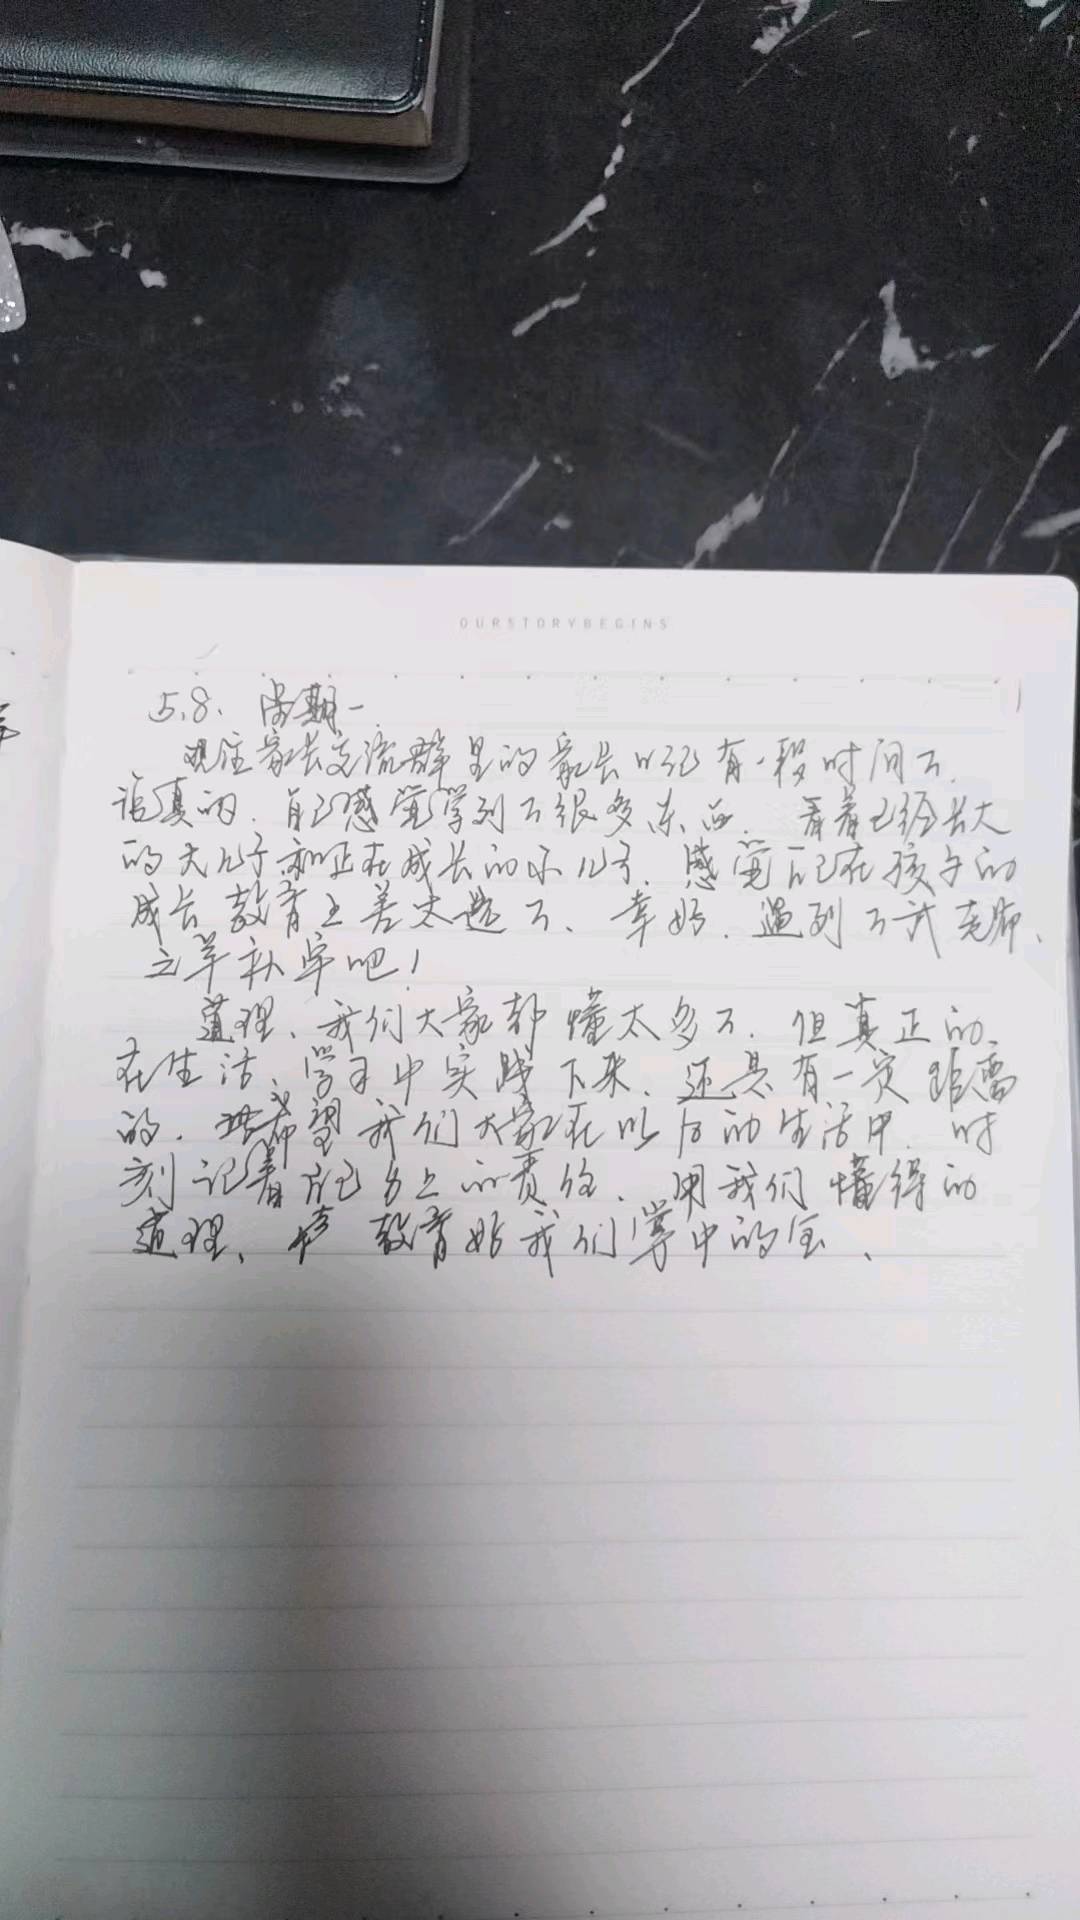 OURSTORYBEGINS
5.8. 星期一
关注家长交流群里的家长 已有一段时间了.
认真的. 自己感觉学到了很多东西. 看着已经长大
的大儿子和正在成长的小儿子. 感觉自己在孩子的
成长教育上差太远了、幸好. 遇到了武老师、
亡羊补牢吧!
道理、我们大家都懂太多了. 但真正的、
在生活、学习中实践下来. 还是有一定距离
的. 希望我们大家在以后的生活中. 时
刻记着自己身上的责任. 用我们懂得的
道理、 教育好我们掌中的宝、